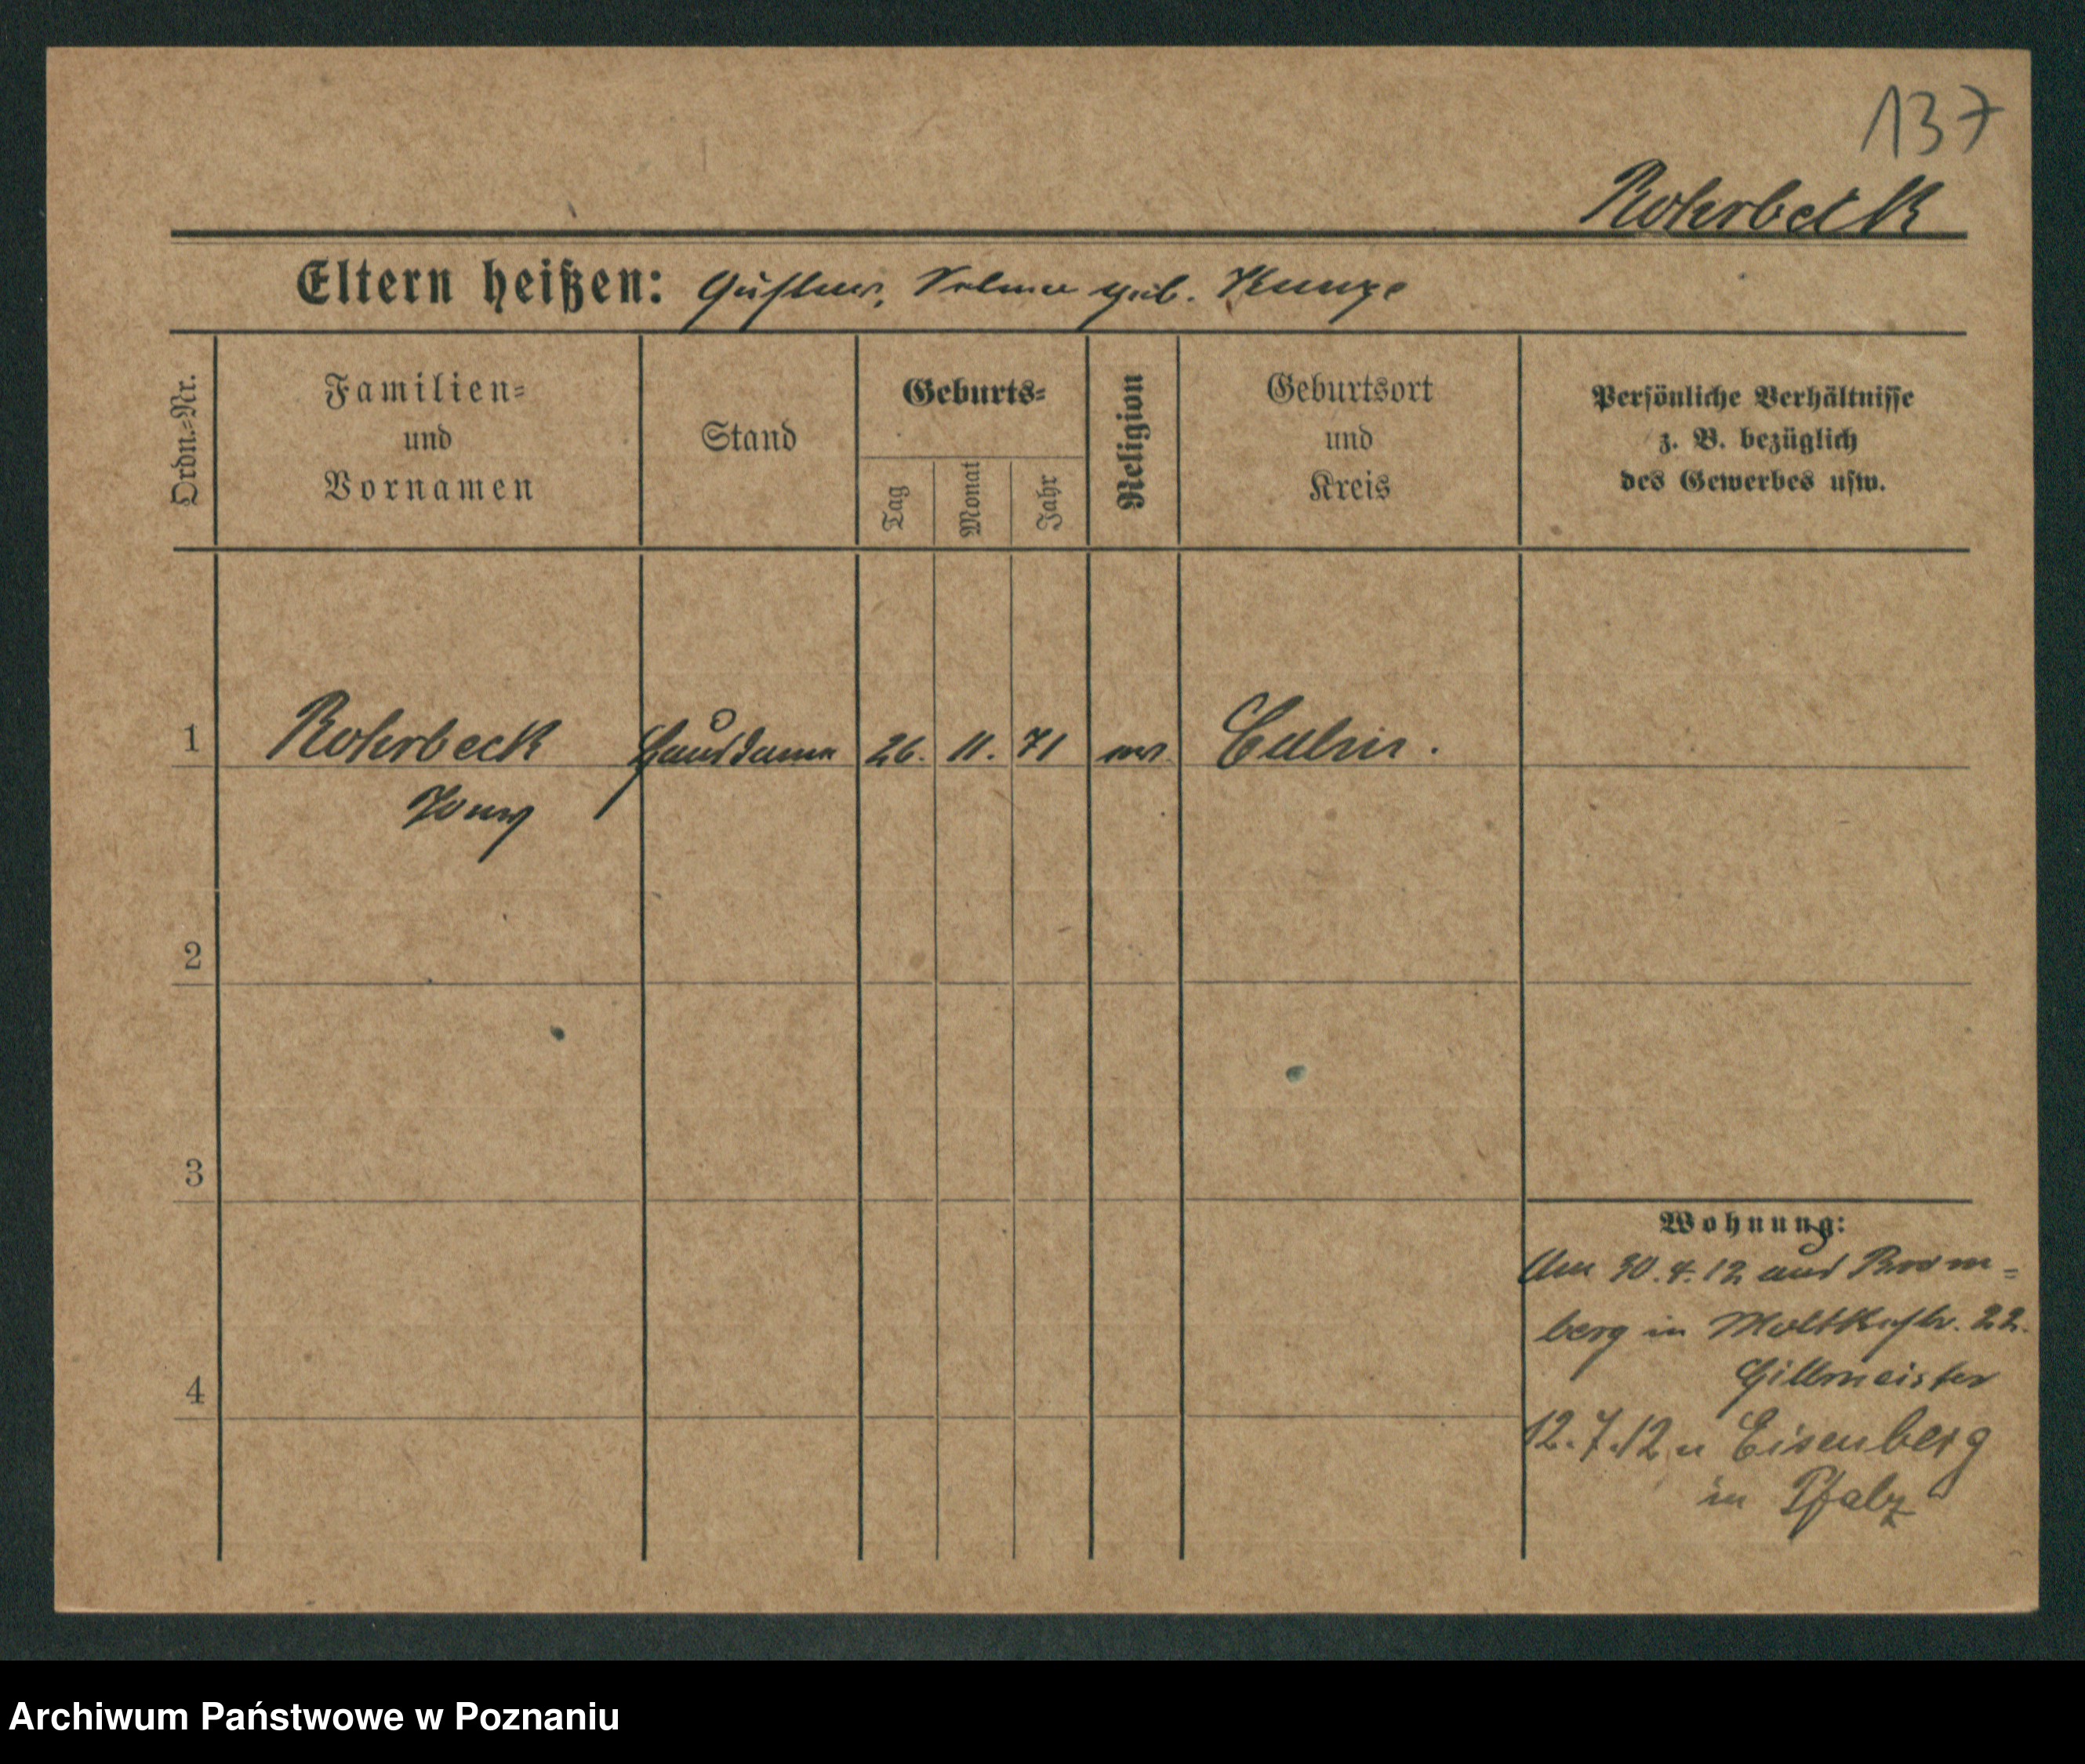 137
Rohrbeck
Eltern heißen: Gustav, Selma geb. Kunze
Ordn.-Nr.
Familien- und Vornamen
Stand
Geburts-
Tag
Monat
Jahr
Religion
Geburtsort und Kreis
Persönliche Verhältnisse
z. B. bezüglich
des Gewerbes usw.
1 Rohrbeck Hausdame 26. 11. 71 Culm.
2
3
4
Wohnung:
Am 30.4.12 aus Brom-
berg in Moltkestr. 22.
Gillmeister
12.7.12 n Eisenberg
in Pfalz
Archiwum Państwowe w Poznaniu